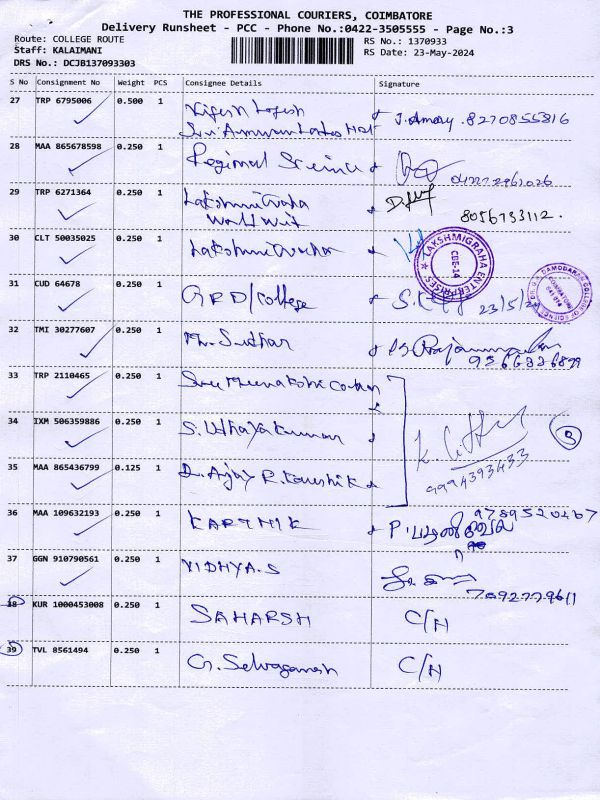 THE PROFESSIONAL COURIERS, COIMBATORE
Delivery Runsheet - PCC - Phone No.:0422-3505555 - Page No.:3
Route: COLLEGE ROUTE
Staff: KALAIMANI
DRS No.: DCJB137093303
RS No.: 1370933
RS Date: 23-May-2024
S No Consignment No Weight PCS Consignee Details Signature
27 TRP 6795006 0.500 1
8270855816
28 MAA 865678598 0.250 1 Regional Science
29 TRP 6271364 0.250 1
8056733112.
30 CLT 50035025 0.250 1
LAKSHMIGRAHA ENTERPRISES
CBE-14
31 CUD 64678 0.250 1 GRD/College 23/5/
32 TMI 30277607 0.250 1 Sudhar
33 TRP 2110465 0.250 1
34 IXM 506359886 0.250 1 S. Uthayakumar
3
9994393433
35 MAA 865436799 0.125 1 D. Ajay R. Kaushik
36 MAA 109632193 0.250 1 KARTHIK
9789520267
37 GGN 910790561 0.250 1 VIDHYA.S
38 KUR 1000453008 0.250 1 SAHARSH C/H
39 TVL 8561494 0.250 1 G. Selvaganesh C/H